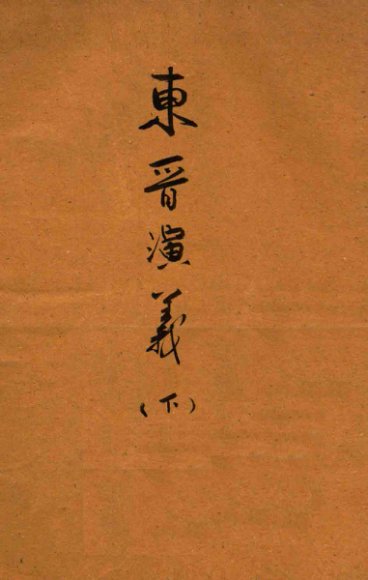 東晋演義(下)